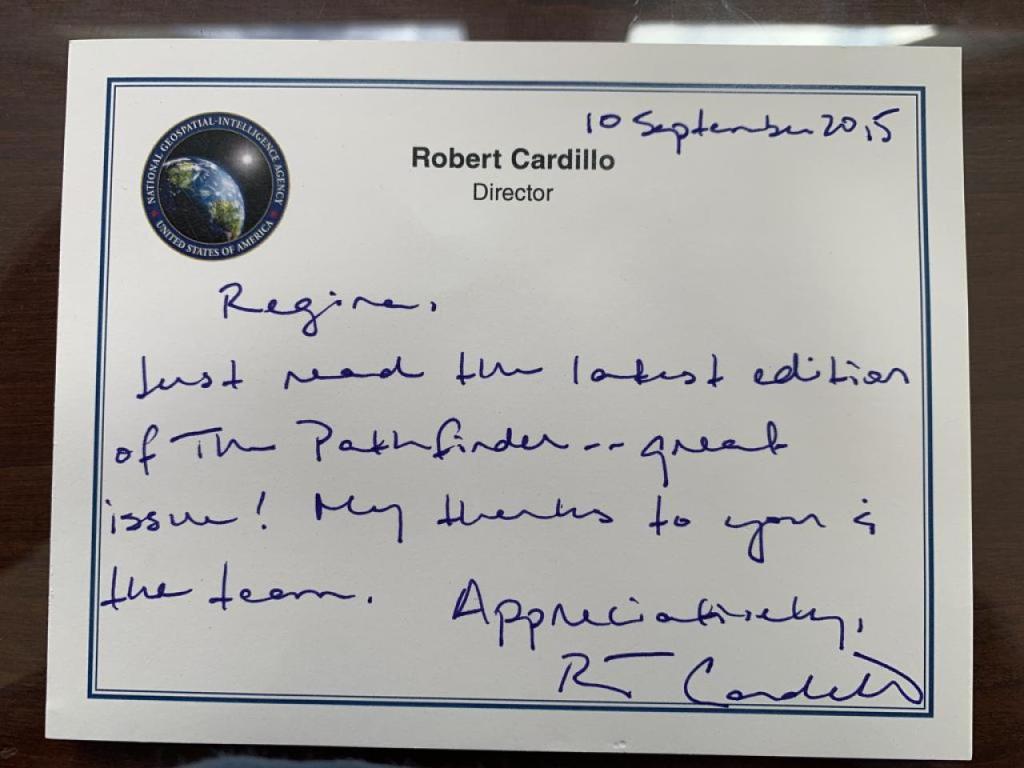 10 September 2015
NATIONAL GEOSPATIAL-INTELLIGENCE AGENCY
UNITED STATES OF AMERICA
Robert Cardillo
Director
Regine,
Just read the latest edition
of The Pathfinder -- great
issue! My thanks to you &
the team.
Appreciatively,
RT Cardillo